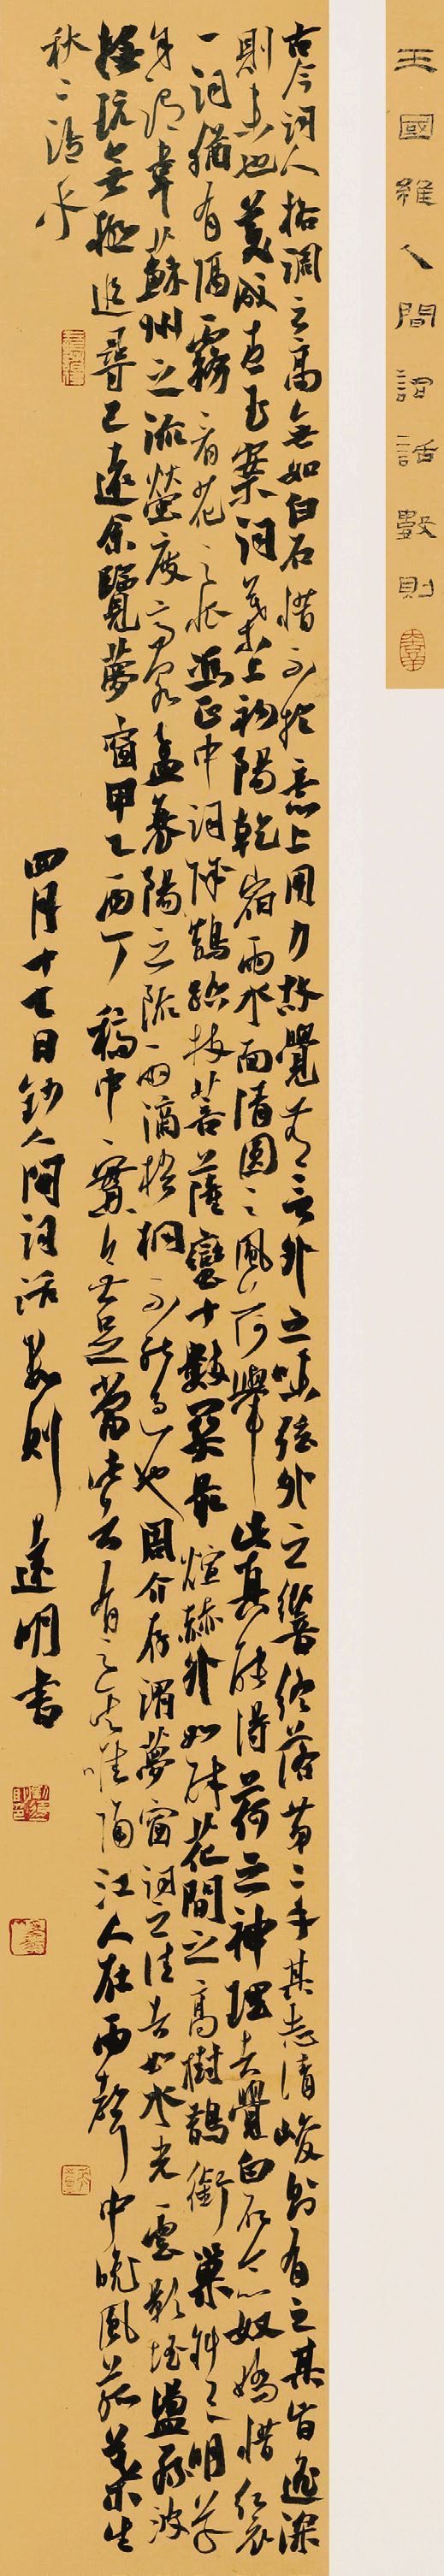 王國維人間詞話數則
古今詞人格調之高無如白石惜不於意上用力故覺無言外之味弦外之響終落第二手其志清峻則有之其旨遙深
則未也美成青玉案詞葉上初陽乾宿雨水面清圓一一風荷舉此真能得荷之神理者覺白石念奴嬌惜紅衣
一詞猶有隔霧看花之恨馮正中詞除鵲踏枝菩薩蠻十數闋最煊赫外如醉花間之高樹鵲銜巢斜月明寒草
余謂韋蘇州之流螢度高閣孟襄陽之疏雨滴梧桐不能過也周介存謂夢窗詞之佳者如水光雲影搖蕩綠波
撫玩無極追尋已遠余覽夢窗甲乙丙丁稿中實無足當此者有之其唯隔江人在雨聲中晚風菰葉生
秋怨乎
四月十七日鈔人間詞話數則 遠明書